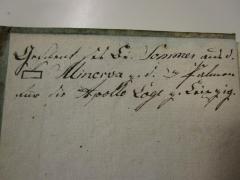 Geschenk des Br. Sommer aus d.
▭ Minerva z. d. 3 Palmen
für die Apollo Loge z. Leipzig.